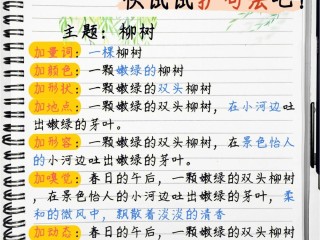 快试试扩句法吧!
主题：柳树
加量词：一棵柳树
加颜色：一颗嫩绿的柳树
加形状：一颗嫩绿的双头柳树
加地点：一颗嫩绿的双头柳树，在小河边吐
出嫩绿的芽叶。
加形容：一颗嫩绿的双头柳树，在景色怡人
的小河边吐出嫩绿的芽叶。
加嗅觉：春日的午后，一颗嫩绿的双头柳树
，在景色怡人的小河边吐出嫩绿的芽叶，柔
和的微风中，飘散着淡淡的清香
加动态：春日的午后，一颗嫩绿的双头柳树